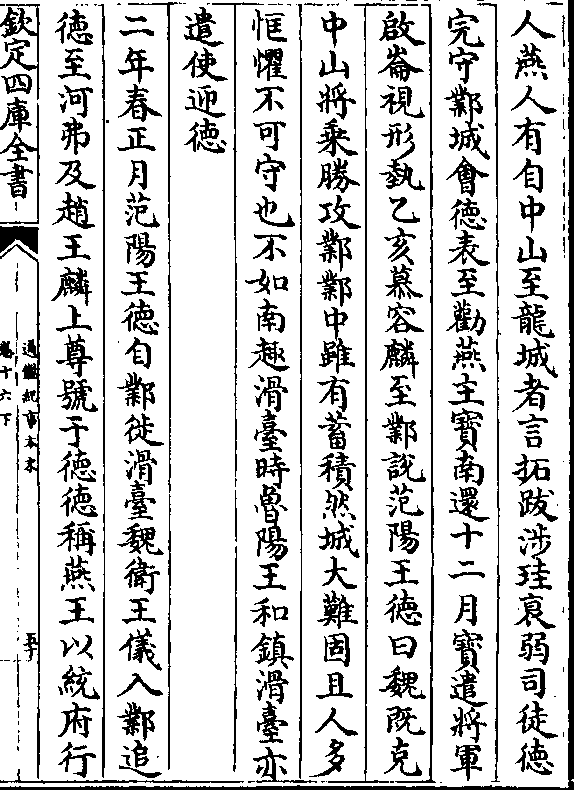 人燕人有自中山至龍城者言拓跋涉珪衰弱司徒德
完守鄴城會德表至勸燕主寳南還十二月寳遣將軍
啟崙視形埶乙亥慕容麟至鄴說范陽王德曰魏既克
中山將乗勝攻鄴鄴中雖有蓄積然城大難固且人多
恇懼不可守也不如南趣滑臺時魯陽王和鎮滑臺亦
遣使迎德
二年春正月范陽王德自鄴徙滑臺魏衛王儀入鄴追
德至河弗及趙王麟上尊號于德德稱燕王以統府行
欽定四庫全書
通鑑紀事本末
卷十六下